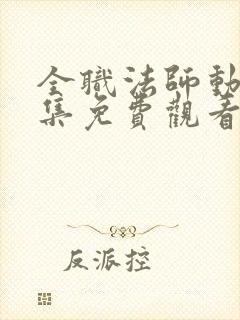 全職法師動
集免費觀看
反派控